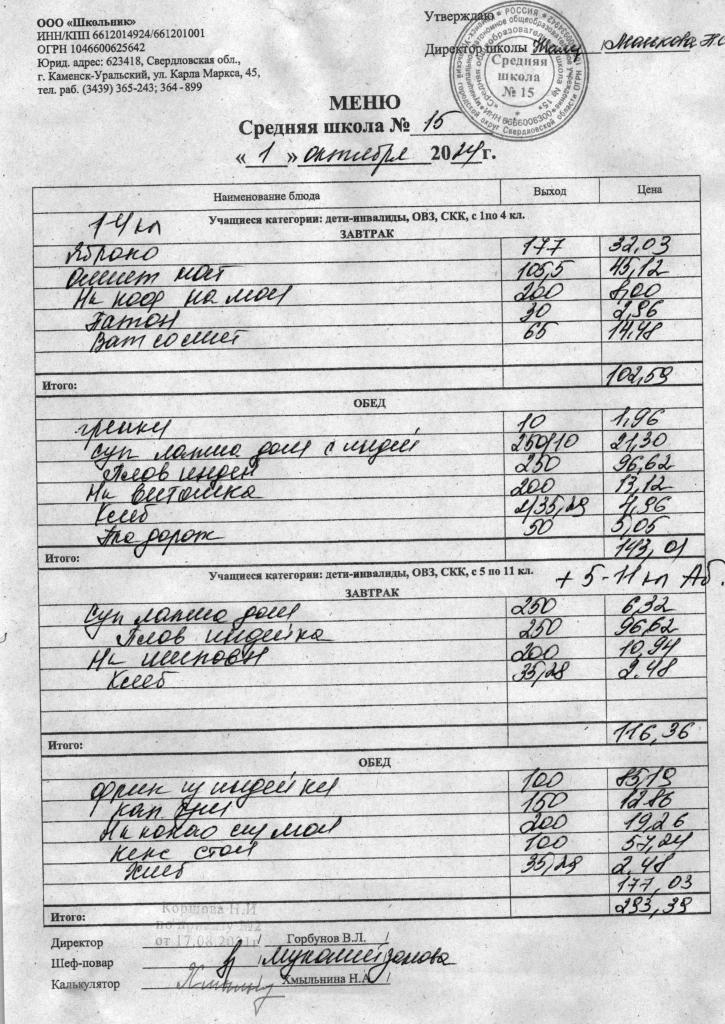 ООО «Школьник»
ИНН/КПП 6612014924/661201001
ОГРН 1046600625642
Юрид. адрес: 623418, Свердловская обл.,
г. Каменск-Уральский, ул. Карла Маркса, 45,
тел. раб. (3439) 365-243; 364 - 899
Утверждаю
Директор школы
Средняя
школа
№ 15
МЕНЮ
Средняя школа № 15
« 1 » октября 2024 г.
Наименование блюда Выход Цена
1-4 кл
Учащиеся категории: дети-инвалиды, ОВЗ, СКК, с 1по 4 кл.
ЗАВТРАК
Яблоко 177 32,03
Омлет нат 105,5 45,12
На коф на мол 200 8,00
Батон 30 2,96
65 14,48
Итого: 102,59
ОБЕД
гренки 10 1,96
Суп лапша дом с индей 250/10 21,30
Плов индей 250 96,62
На Витошка 200 13,12
Хлеб 4,96
50 5,05
Итого: 143,01
Учащиеся категории: дети-инвалиды, ОВЗ, СКК, с 5 по 11 кл.
+ 5-11 кл Аб.
ЗАВТРАК
Суп лапша дом 250 6,32
Плов индейка 250 96,62
На шиповн 200 10,94
Хлеб 35,28 2,48
Итого: 116,36
ОБЕД
100 85,19
150 12,86
На какао сгу мол 200 19,26
Кекс стол 100 57,24
Хлеб 2,48
177,03
Итого: 293,39
Коршова Н.И
от 17.08.2021
Директор / Горбунов В.Л. /
Шеф-повар
Калькулятор / Хмыльнина Н.А. /